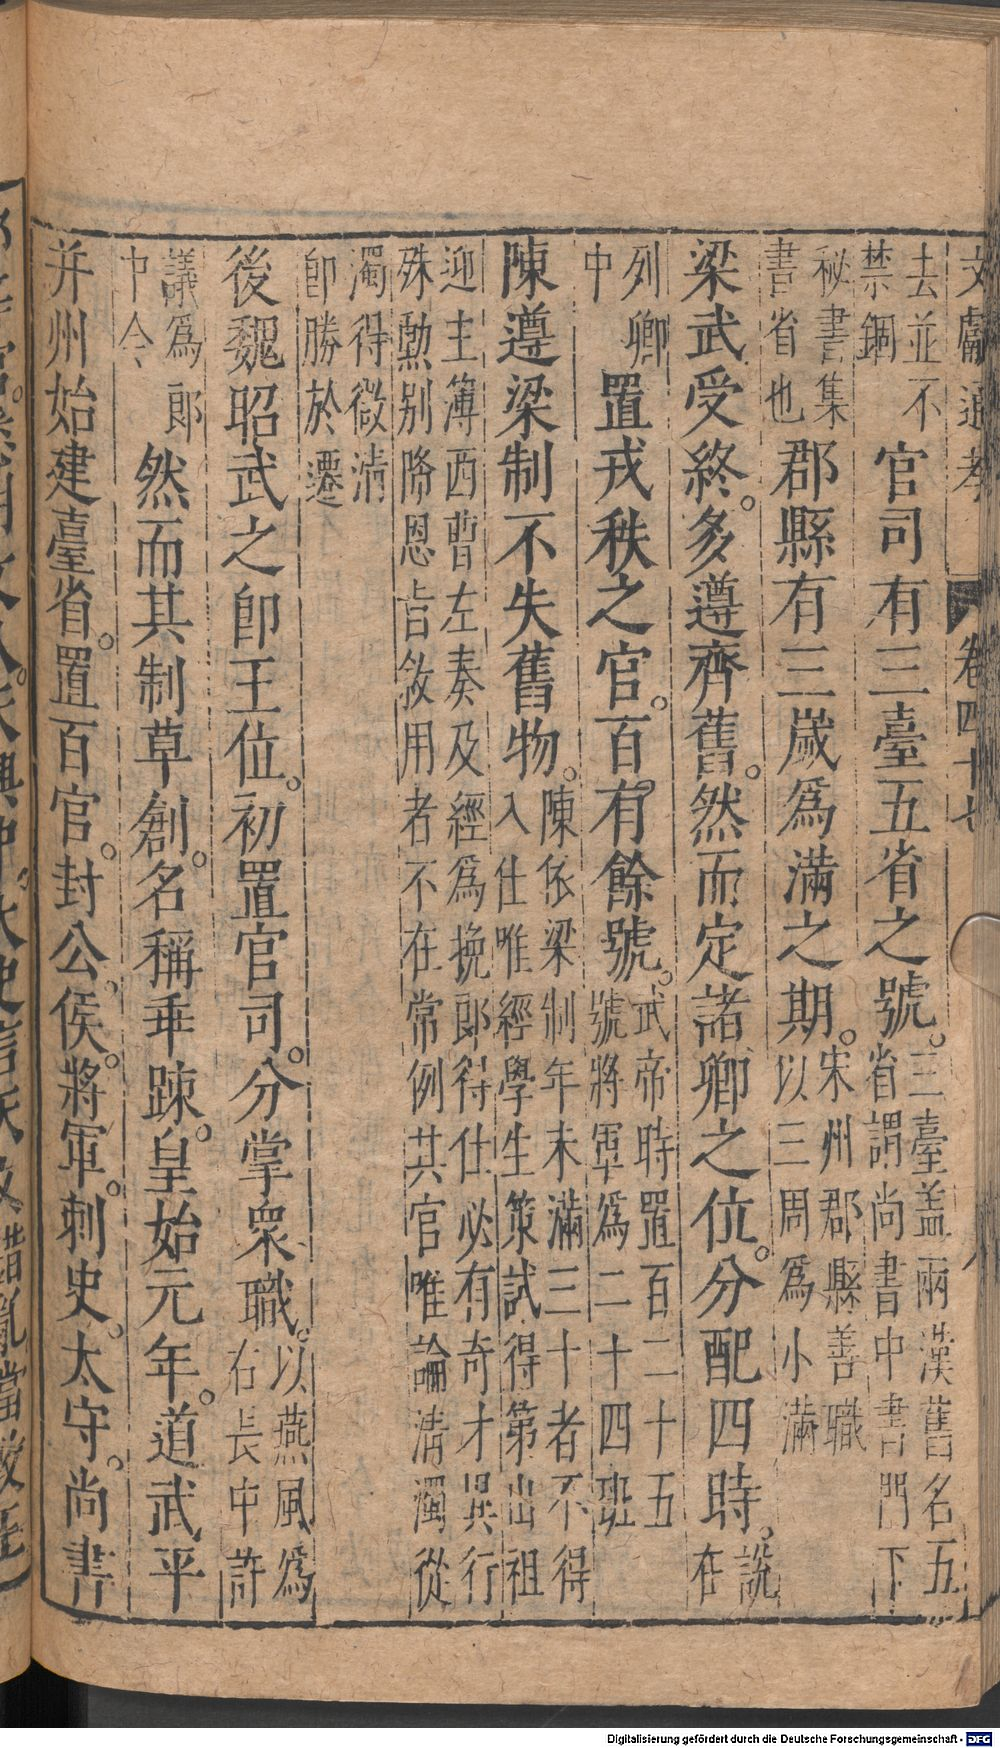 文獻通考 卷四十七 八
去並不禁錮官司有三臺五省之號。三臺蓋兩漢舊名五省謂尚書中書門下
秘書集書省也郡縣有三歲為滿之期。宋州郡縣善職以三周為小滿
梁武受終。多遵齊舊。然而定諸卿之位。分配四時。說在
列卿中置戎秩之官。百有餘號。武帝時置百二十五號將軍為二十四班
陳遵梁制不失舊物。陳依梁制年未滿三十者不得入仕唯經學生策試得第出祖
迎主簿西曹左奏及經為挽郎得仕必有奇才異行殊勳別降恩旨敘用者不在常例其官唯論清濁從
濁得微清即勝於遷
後魏昭武之即王位。初置官司。分掌眾職。以燕風為右長中許
議為郎中令然而其制草創。名稱乖疎。皇始元年。道武平
并州始建臺省。置百官。封公侯。將軍。刺史。太守。尚書
Digitalisierung gefördert durch die Deutsche Forschungsgemeinschaft - DFG